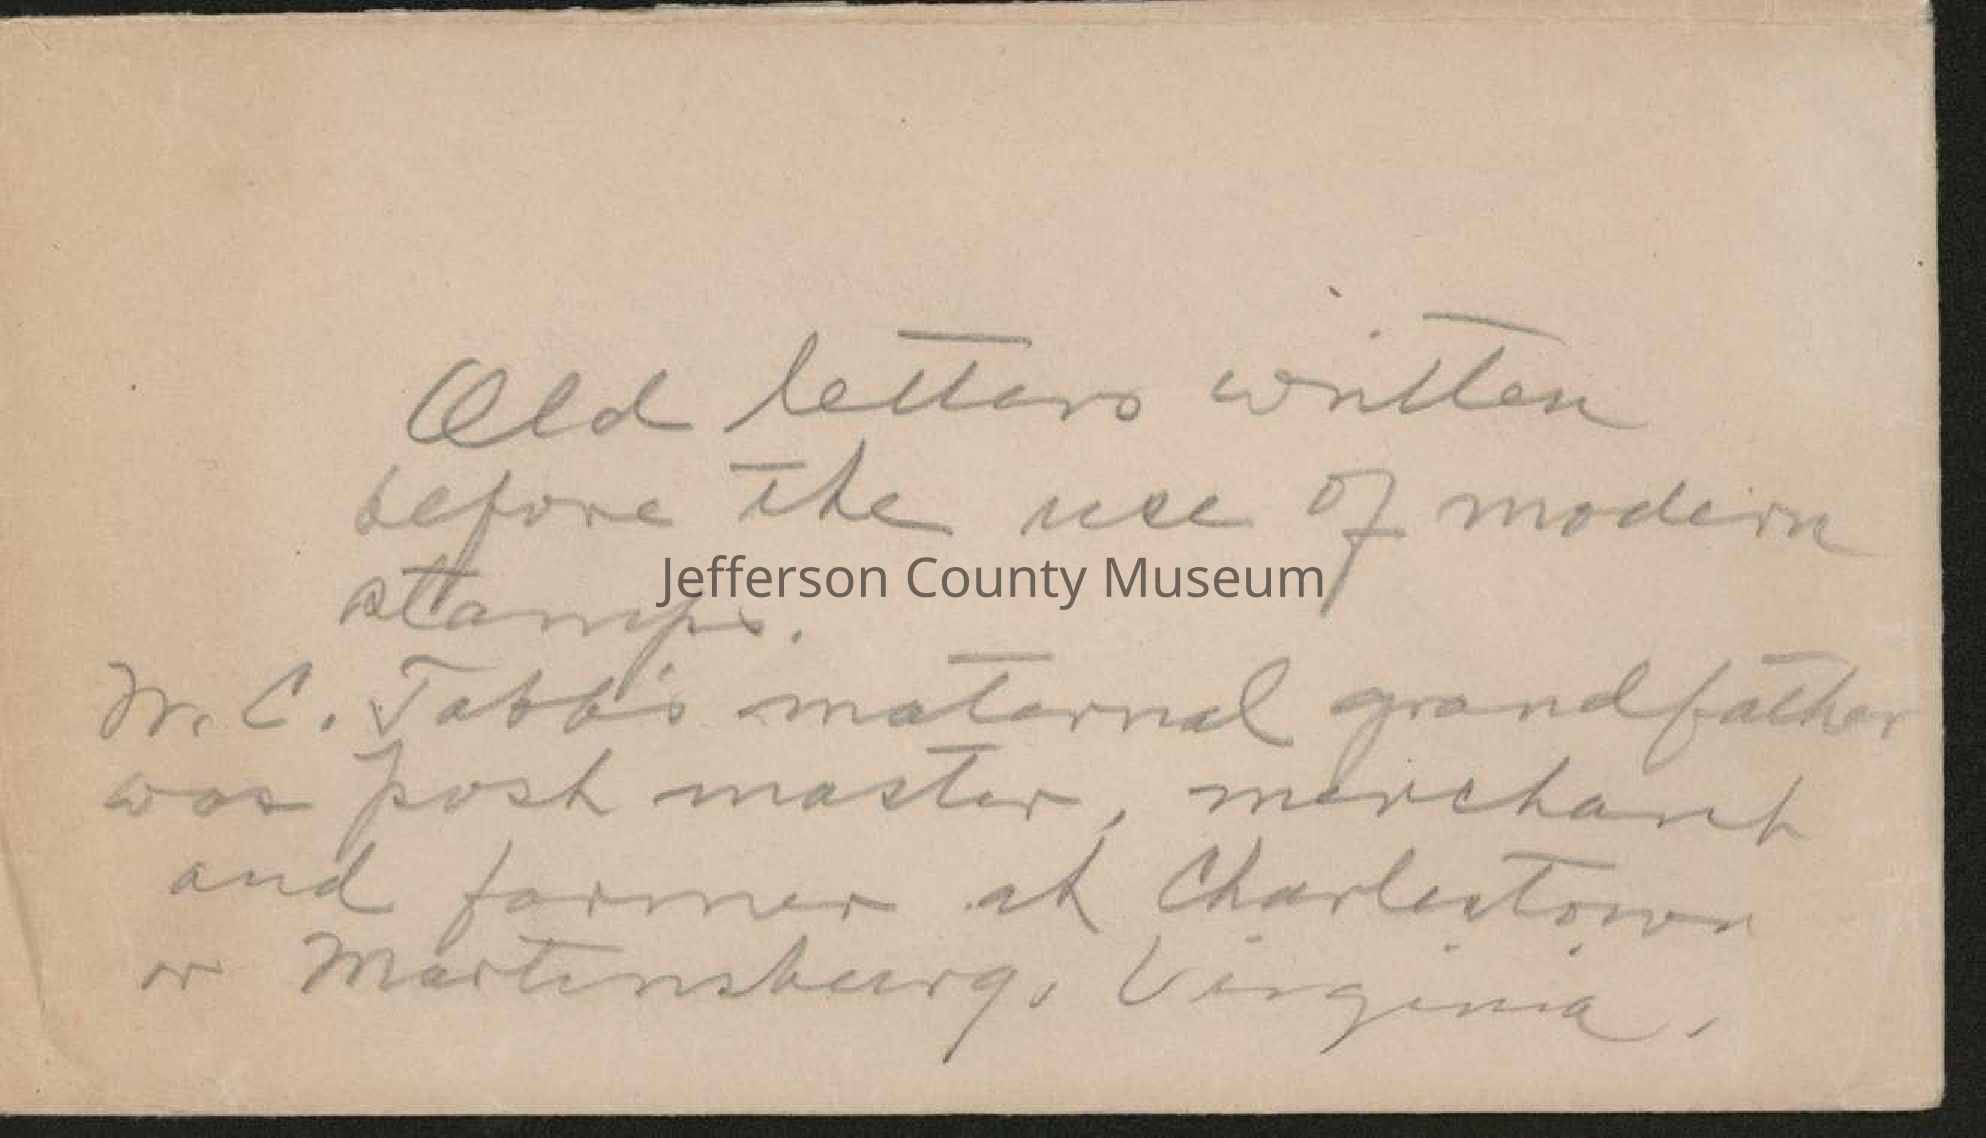 Old letters written
before the use of modern
Jefferson County Museum
stamps.
W. C. Tabb's maternal grandfather
was post master, merchant
and farmer at Charlestown
or Martinsburg, Virginia.